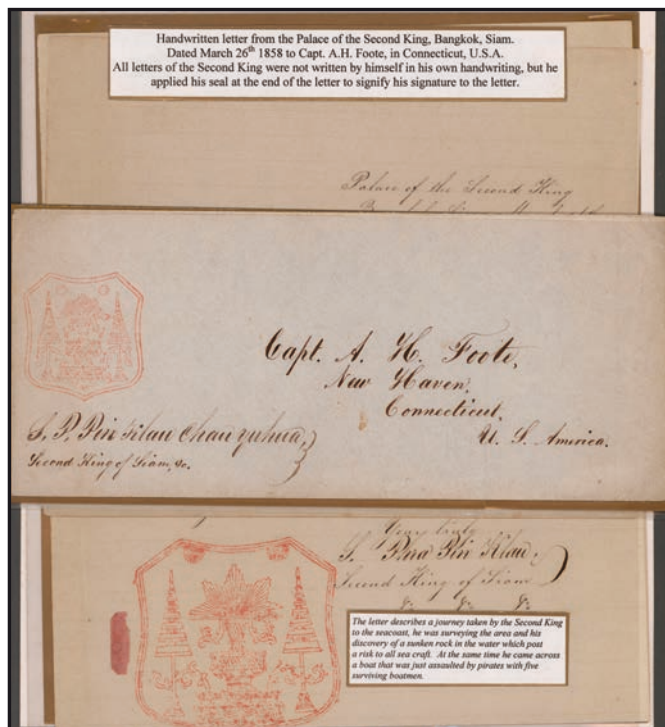 Handwritten letter from the Palace of the Second King, Bangkok, Siam.
Dated March 26th 1858 to Capt. A.H. Foote, in Connecticut, U.S.A.
All letters of the Second King were not written by himself in his own handwriting, but he
applied his seal at the end of the letter to signify his signature to the letter.
Palace of the Second King
Capt. A. H. Foote,
New Haven,
Connecticut,
U. S. America.
S. P. Pin Klau Chau yuhua,
Second King of Siam, &c.
Very truly
S. Phra Pin Klau,
Second King of Siam
&c &c &c
The letter describes a journey taken by the Second King
to the seacoast, he was surveying the area and his
discovery of a sunken rock in the water which post
a risk to all sea craft. At the same time he came across
a boat that was just assaulted by pirates with five
surviving boatmen.